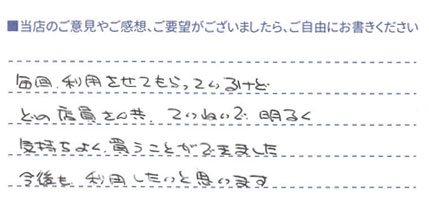 ■当店のご意見やご感想、ご要望がございましたら、ご自由にお書きください
毎回、利用させてもらっているけど
どの店員さん共、ていねいで 明るく
気持ちよく、買うことができました
今後も 利用したいと思います